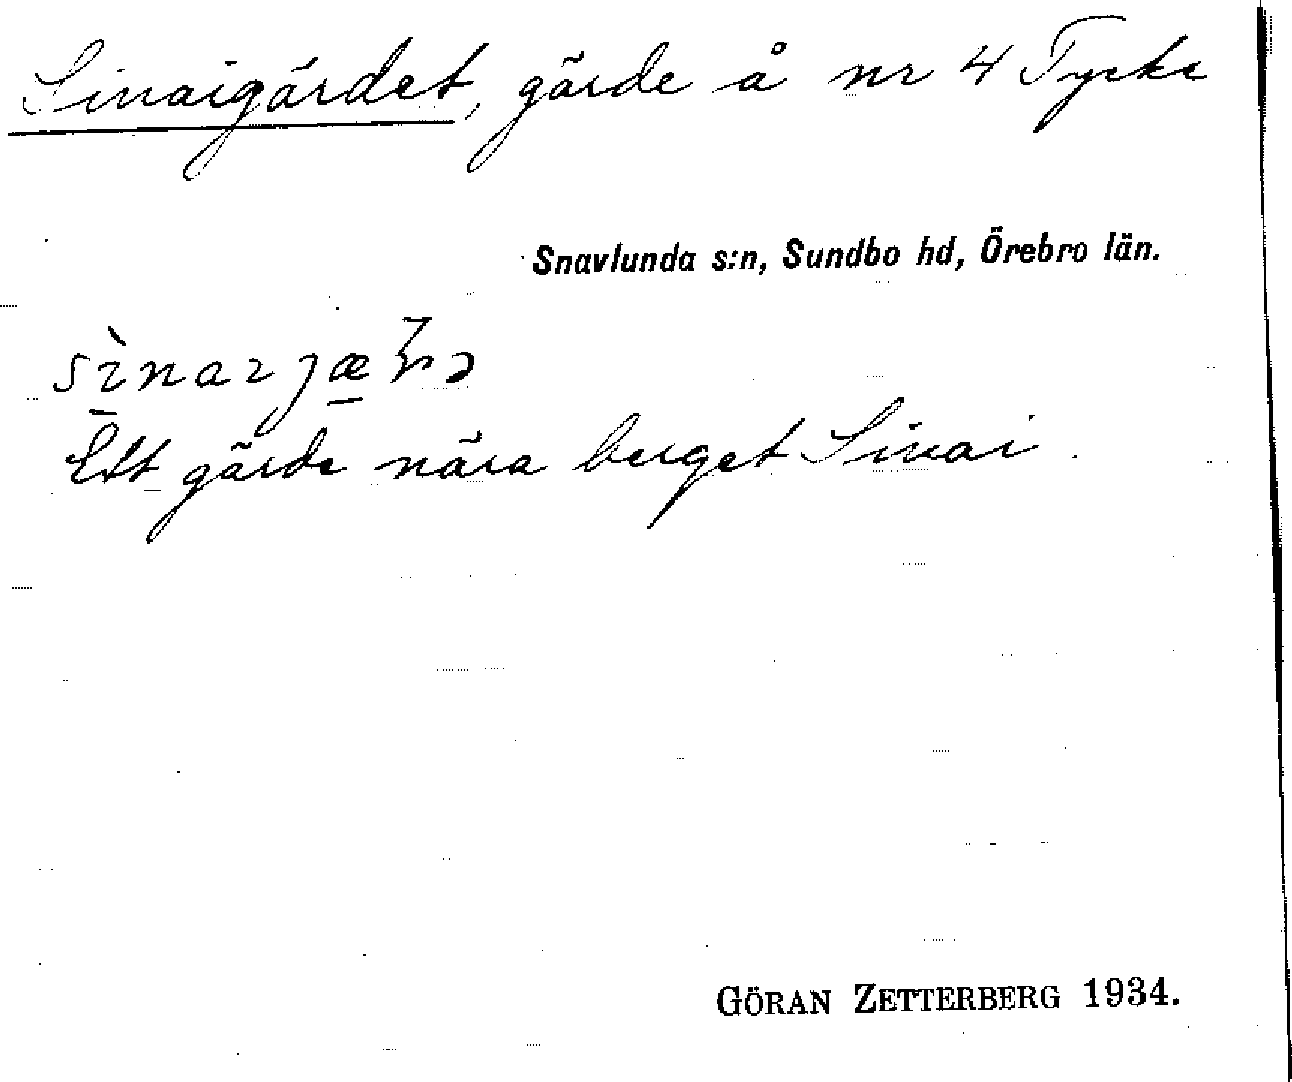 Sinaigärdet, gärde å nr 4 Tycke
Snavlunda s:n, Sundbo hd, Örebro län.
Ett gärde nära berget Sinai.
GÖRAN ZETTERBERG 1934.